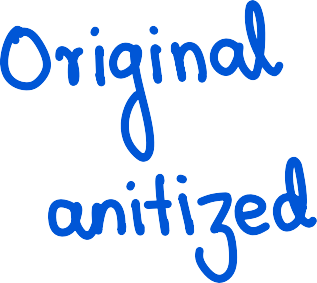 Original
anitized